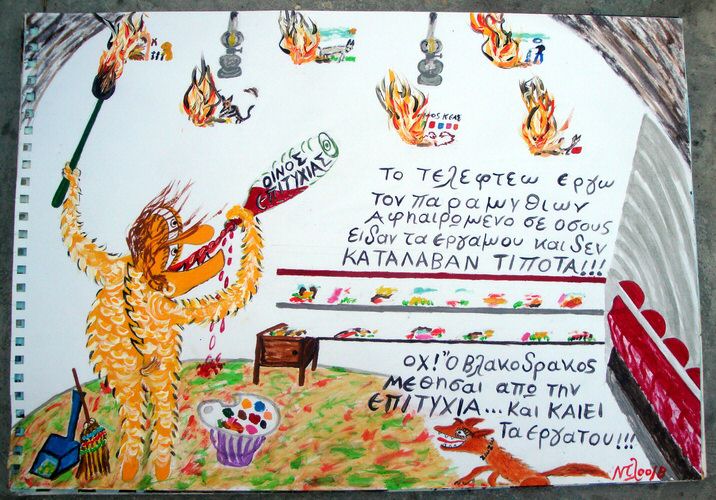 ΟΙΝΟΣ
ΕΠΙΤΥΧΙΑΣ
ΤΟ ΤΕΛΕΦΤΕΩ ΕΡΓΩ
ΤΟΝ ΠΑΡΑΜΥΘΙΩΝ
ΑΦΗΑΙΡΩΜΕΝΟ ΣΕ ΟΣΟΥΣ
ΕΙΔΑΝ ΤΑ ΕΡΓΑΜΟΥ ΚΑΙ ΔΕΝ
ΚΑΤΑΛΑΒΑΝ ΤΙΠΟΤΑ!!!
ΟΧ! Ὁ ΒΛΑΚΟΔΡΑΚΟΣ
ΜΕΘΗΣΑΙ ΑΠΩ ΤΗΝ
ΕΠΙΤΥΧΙΑ... ΚΑΙ ΚΑΙΕΙ
ΤΑ ΕΡΓΑΤΟΥ!!!